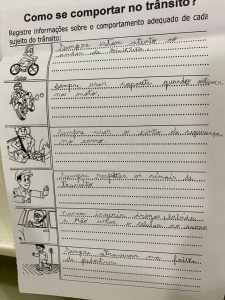 Como se comportar no trânsito?
Registre informações sobre o comportamento adequado de cada
sujeito do trânsito:
Sempre estar atento ao
andar de bicicleta
Sempre usar capacete quando estiver
na moto.
Sempre usar o cinto de segurança
no carro
Sempre respeitar os sinais de
trânsito
Nunca ingerir drogas,
e não usar o celular no carro
Sempre atravessar na faixa
de pedestre